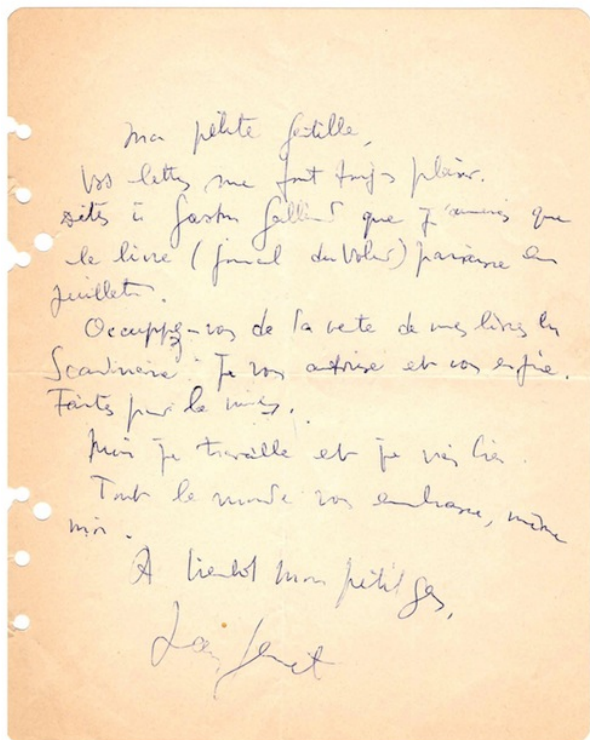 Ma petite
Vos lettres me font toujs plaisir.
Dites à Gaston que j'aimerais que
le livre (journal du voleur) paraisse en
juillet.
Occuppez-vous de la vente de mes livres en
Scandinavie. Je vous autorise et vous en prie.
Faites pour le mieux.
Moi je travaille et je vais bien.
Tout le monde vous embrasse, même
moi.
A bientôt mon petit
Jean Genet